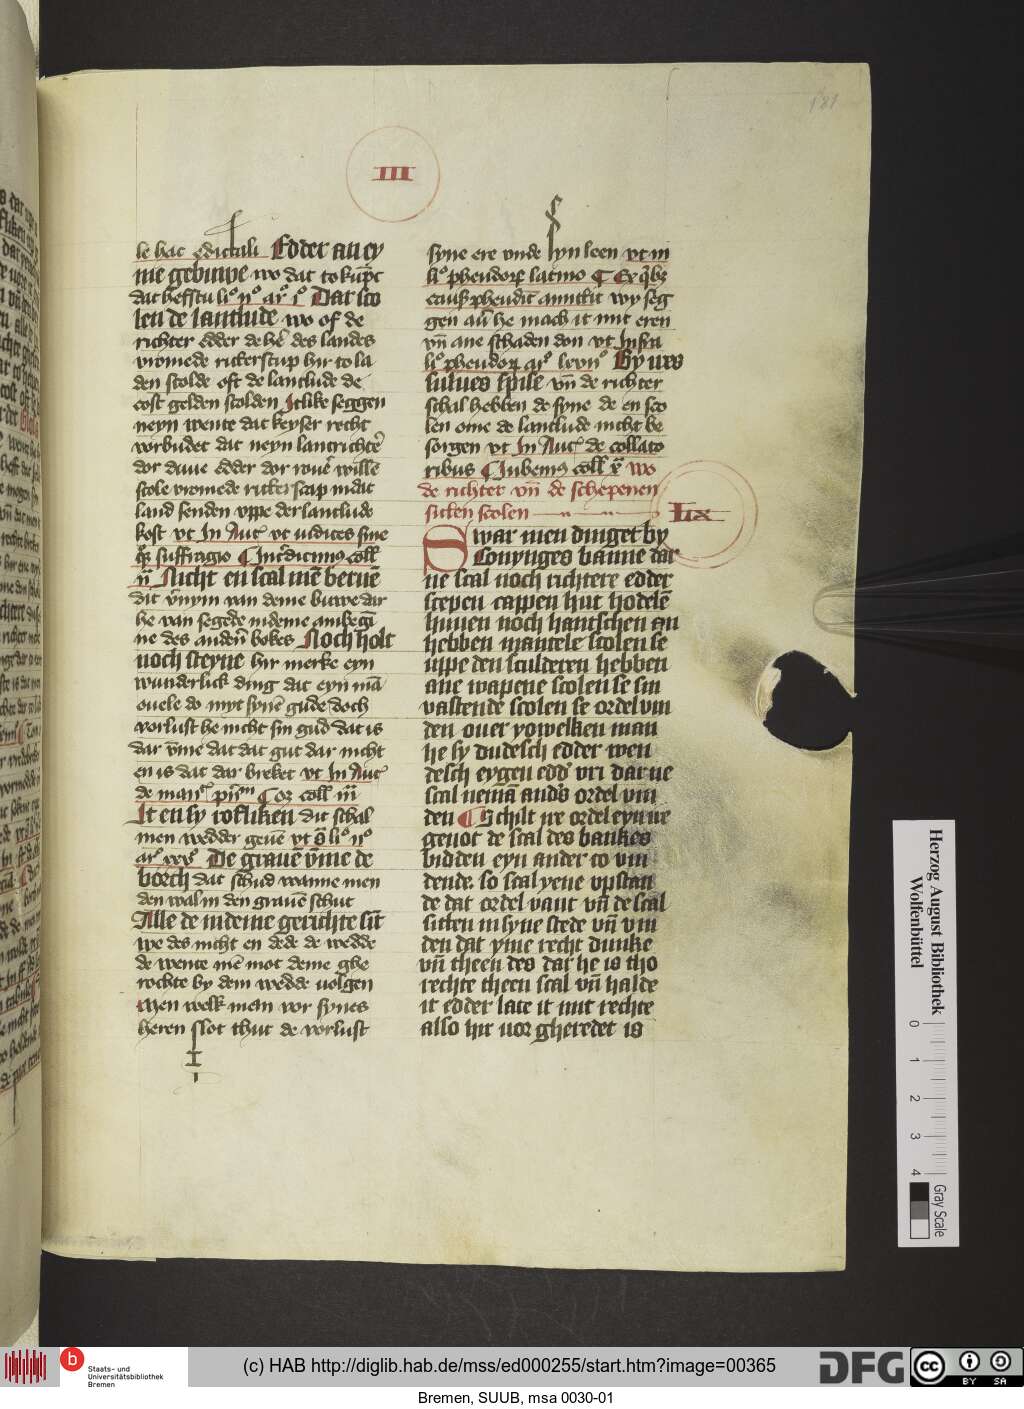 181
III
le hac edictali Edder an ey
nie gebuwe wo dat to kūpt
dat hefstu li° n° ar° i° Dat sco
len de lantlude wo of de
richter edder de hē des landes
vromede rickerscup hir to la
den scolde oft de lantlude de
cost gelden scolden Itlike seggen
neyn wente dat keyser recht
vorbudet dat neyn lantrichtē
dor duue edder dor rouē wille
scole vromede rickerscap in dat
land senden vppe der lantlude
kost vt In Auct vt iudices sine
suffragio
Nicht en scal mē betuē
dit
he van segede in deme anibegī
ne des andeñ bokes Noch holt
noch steyne hir merke eyn
wunderlick ding dat eyn mā
ouele do myt synē gude doch
vorlust he nicht sin gud dat is
dar v̄me dat dat gut dar nicht
en is dat dar breket vt In Auct
de
It en sy vofliken dit schal
men wedder geuē vt
De grauē v̄me de
borch dat schud wanne men
den wal in den grauē schut
Alle de in deme gerichte sīt
we des nicht en dede de wedde
de wente mē mot deme ghe
rochte by dem wedde volgen
Men welk man vor synes
heren slot thut de vorlust
syne ere vnde syn leen vt in
li° pheudorum
wy seg
gen
vn̄ ane schaden don vt Infra
li° pheudorum By uws
sulues spise vn̄ de richter
schal hebben de syne de en sco
len ome de lantlude nicht be
sorgen vt In Auct de collato
ribus wo
de richter vn̄ de schepenen
sitten scolen
LIX
Swar men dinget by
konynges banne dar
ne scal noch richtere edder
scepen cappen hut hodelē
huuen noch hantschen an
hebben mantele scolen se
uppe den sculderen hebben
ane wapene scolen se sin
vastende scolen se ordel vin
den ouer yowelken man
he sy dudesch edder wen
desch eygen edd' vri dar ne
scal nemā and's ordel vin
den Schilt ne ordel eyn ne
genot de scal des bankes
bidden eyn ander to vin
dende. so scal yene vpstan
de dat ordel vant vn̄ de scal
sitten in syne stede vn̄ vin
den dat yme recht dunke
vn̄ theen des dar he is tho
rechte theen scal vn̄ halde
it edder late it mit rechte
also hir vor gheredet is
Herzog August Bibliothek
Wolfenbüttel
0 1 2 3 4
Gray Scale
b
Staats- und
Universitätsbibliothek
Bremen
(c) HAB http://diglib.hab.de/mss/ed000255/start.htm?image=00365
DFG
cc BY SA
Bremen, SUUB, msa 0030-01